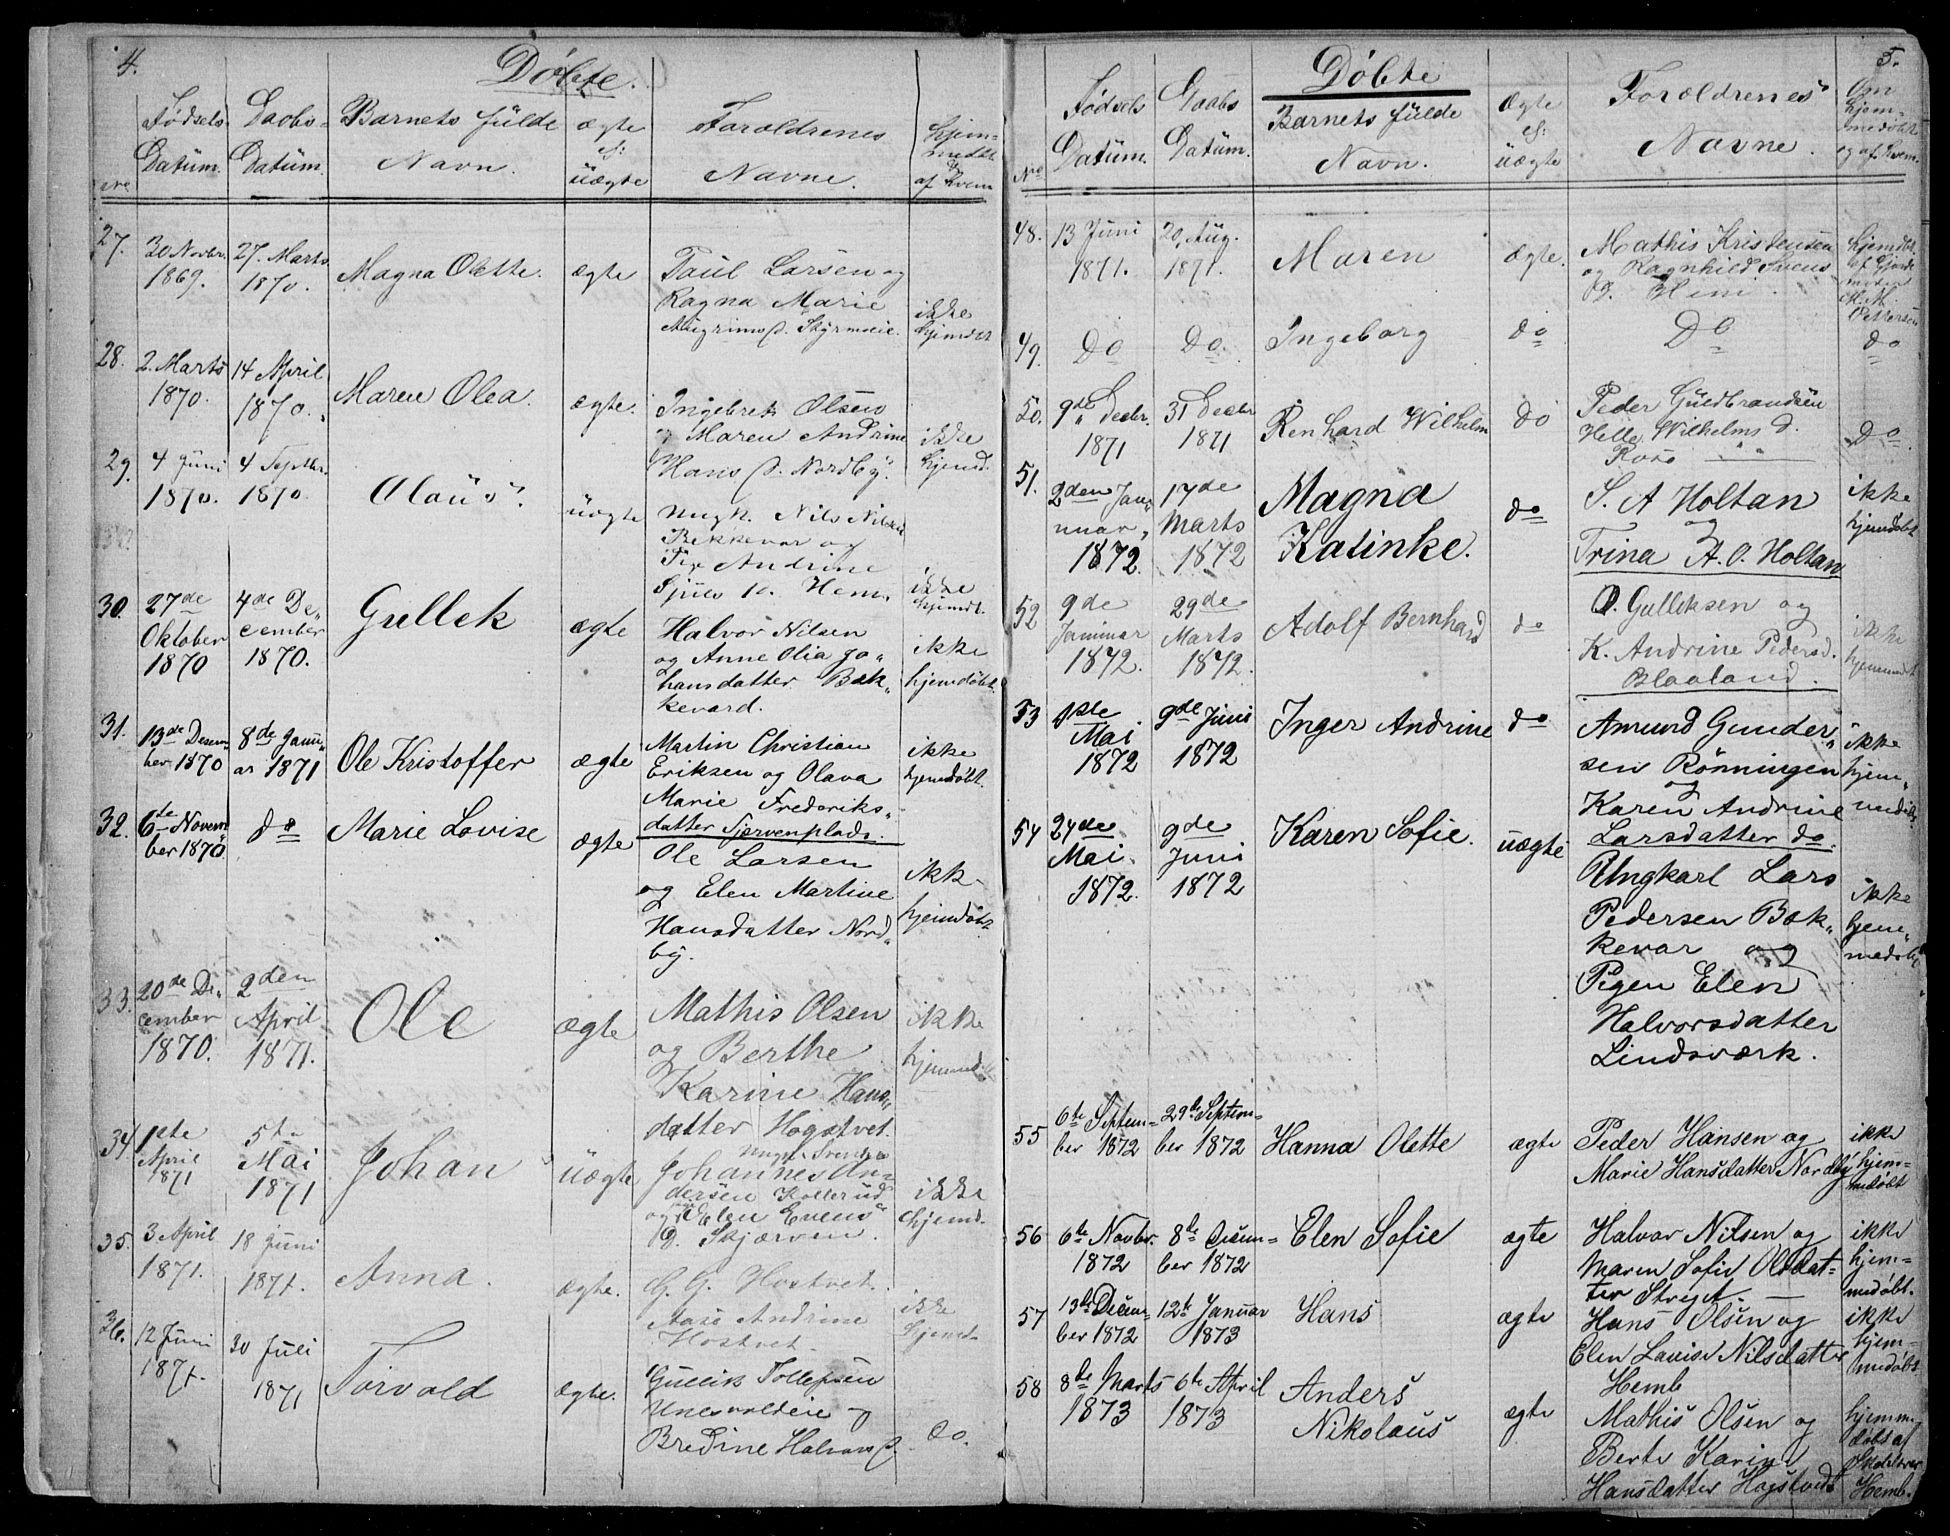 4.
Døbte.
Fødsels Daabs- Barnets fülde ægte Foræeldrenes hjem-
Datüm. Datüm. Navn. ef: üægte Navne. af hvem
27. 30 Novbr. 1869. 27. Marts 1870. Magna Olette. ægte Paul Larsen og
Ragna Marie
ikke hjemdøt
28. 2. Marts 1870. 14 April 1870. Maren Olea. ægte. Ingebret Olsen
og Maren Andrine
Hans D. Nordby. ikke hjemd.
29. 4 Juni 1870. 4 Septbr. 1870. Olaüs. üægte Ungk. Nils Nilsen
Bekkevar og
Andrine
Hem. ikke hjemdt.
30. 27de Oktober 1870 4de De„cember 1870. Gullek ægte Halvor Nilsen
og Anne Olia Jo„
hansdatter Bak„
kevard. ikke hjemdøbt.
31. 13de Desem„ber 1870 8de Janü„ar 1871 Ole Kristoffer ægte Martin Christian
Eriksen og Olava
Marie Frederiks„
datter Sjærvenplads. ikke hjemdøbt.
32. 6te Novem„ber 1870. do Marie Lovise ægte Ole Larsen
og Elen Martine
Hansdatter Nord„
by. ikk- hjemdøbt
33. 20de De„cember 1870. 2den April 1871. Ole ægte Mathis Olsen
og Berthe
Karine Hans„
datter Hogstvet. ikke hjemmd.
34 1ste April 1871 5te Mai 1871 Johan üægte Ungk. Svend
Johannes An-
dersen Kollerüd
og Elen Evens
D. Skjærven. ikke hjemd.
35. 3 April 1871. 18 Juni 1871. Anna. ægte. G. G. Hostvet.
Aase Andrine
Hostvet. ikke hjemd.
36. 12 Juni 1871. 30 Juli 1871 Torvald ægte. Gullik Tollefsen
og
Bredine Halvors D. Do.
5.
Døbte
No Fødsels Daabs Barnets fülde Ægte Forældrenes Om hjem-medøbt
Datüm. Datüm. Navn. ef: üægte Navne. og af hvem
48. 13 Juni 1871. 20. Aug. 1871. Maren Ægte. Mathis Kristensen
og Ragnhild Svens
D. Hem. hjemdbt. af M. Pettersen
49. Do Do. Ingeborg do Do do
50. 9de Decbr. 1871 31 Decbr 1871 Renhard Wilhelm do Peder Güldbrandsen
Helle Wilhelms d. Do
51. 2den Jan„uar„ 1872. 17de Marts 1872 Magna Katinke. do S. A Holtan
og
Trina A. O. Holtan ikke hjemdøbt
52 9de Januar 1872. 29de Marts 1872. Adolf Bernhard do O. Gulliksen og
K. Andrine Pedersd.
Blaaland. ikke hjemmdt
53 1ste Mai 1872 9de Juni 1872 Inger Andrine do Amund Gunder„
sen Rönningen
og
Karen Andrine
Larsdatter do. ikke hjem„medøbt
54 24de Mai. 1872. 9de Juni 1872 Karen Sofie. uægte Ungkarl Lars
Pedersen Bak„
kevar og
Pigen Elen
Halvorsdatter
Lindsværk. ikke hjem„medøbt
55 6te Septem-ber 1872 29de Septem-ber 1872 Hanna Olette ægte Peder Hansen og
Marie Hansdatter Nordby ikke hjem-medøbt
56 6te Novbr. 1872 8de Decem-ber 1872 Elen Sofie ægte Halvor Nilsen og
Maren Sofie Olsdat-
ter Stryt. ikke hjem-medøbt.
57 13de Decem-ber 1872 12te Januar 1873 Hans ægte Hans Olsen og
Elen Lovise Nilsdatter
Hemb ikke hjem-medøbt
58 8de Marts 1873 6te April 1873 Anders Nikolaus ægte Mathis Olsen og
Berte Karine
Hansdatter Hogstvedt hjemmedøbt af Skolelærer Hemb.